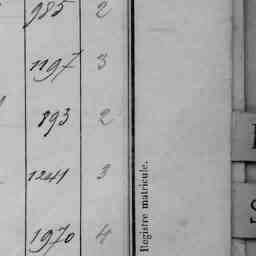 985 2
1197 3
893 2
1241 3
1970 4
Registre matricule.